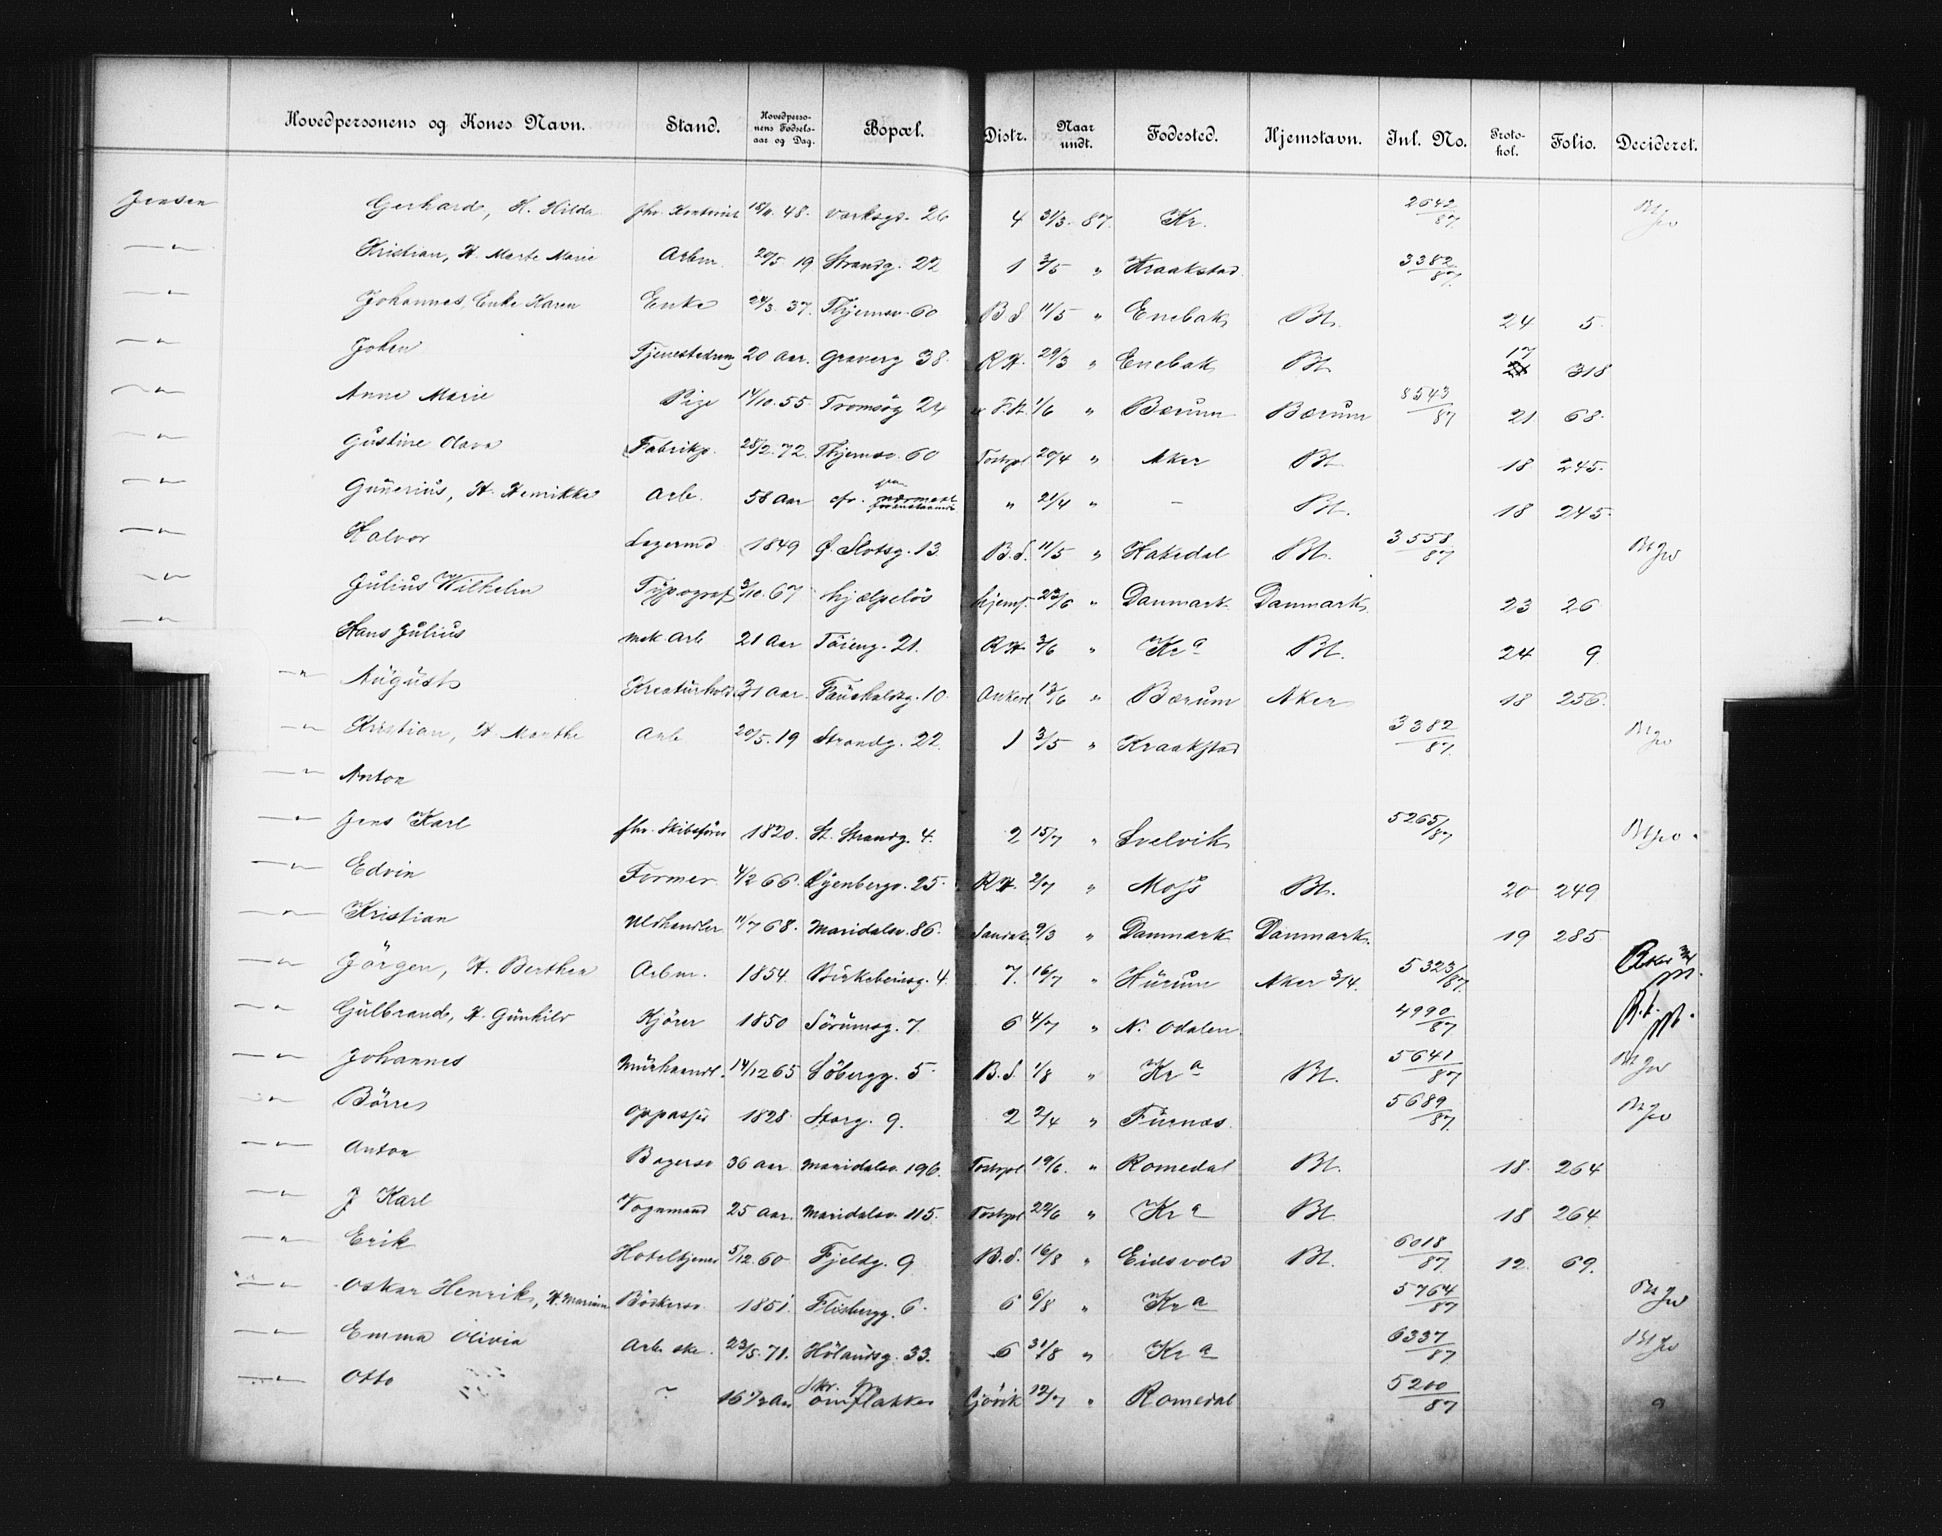 Hovedpersonens og Kones Navn. Stand. Hovedpersonens Fødselsaar og Dag. Bopæl. Distr. Naar undt. Fødested. Hjemstavn. Inl. No. Protokol. Folio. Decideret.
Jensen Gerhard, H. Hilda fhv. Kontorist 18/11 48. Værksgd. 26 4 31/3 87. Kr. 2642/87
—"— Kristian, H. Marte Marie Arbm. 20/5 19 Strandg. 22 1 3/5 " Kraakstad 3382/87.
—"— Johannes, Enke Karen Enke 24/3 37. Thjemsv. 60 B.d 11/5 " Enebak Bt. 24 5.
—"— Johan Tjenestedreng 20 Aar. Graverg 38. R.H. 29/3 " Enebak Bt. 17 318
—"— Anne Marie Pige 14/10.55. Tromsøg 24 1/6 " Bærum Bærum 8543/87 21 68.
—"— Gustine Olava Fabrikp. 28/2.72. Thjemsv. 60 Tostrpl 20/4 " Aker Bt. 18 245.
—"— Gunerius, H. Henrikke Arb. 58 Aar nærmest " 21/4 " – Bt. 18 245.
—"— Halvor Lagermd 1849 Ø. Slotsg. 13 B.d. 11/5 " Hakedal Bt. 3558/87 Bt
—"— Julius Wilhelm Typograf 3/10.67 hjælpeløs hjemf. 22/6 " Danmark Danmark 23 26
—"— Hans Julius mek Arb 21 Aar Töieng. 21. R.H. 3/6 " Kra Bt. 24 9.
—"— August Kreaturhold 31 Aar. Fauskalsg. 10. Ankerl 13/6 " Bærum Aker 18 256.
—"— Kristian, H Marthe Arb 20/5.19 Strandg. 22. 1 3/5 " Kraakstad 3382/87. Bt
—"— Anton
—"— Jens Karl fhv. Skibsfører 1820. St. Strandg. 4. 2 15/7 " Svelvik 5265/87 Bt
—"— Edvin Former 4/2 66. Øyenbergv. 25. R.H. 2/7 " Moss Bt. 20 249
—"— Kristian Uldhandler 11/7 68. Maridalsv. 86. Sandak. 9/3 " Danmark Danmark. 19 285
—"— Jörgen, H. Berthea Arbm. 1854. Birkebeinerg. 4. 7. 16/7 " Hurum Aker 3/4. 5323/87.
—"— Gulbrand, H. Gunhild Kjörer 1850 Sörumsg. 7. 6 4/7 " N. Odalen 4990/87 B.t.
—"— Johannes Murhaandl. 14/12 65 Söbergg. 5. B.d. 1/8 " Kra Bt. 5641/87 Bt
—"— Börre oppasser 1828. Storg. 9. 2 2/4 " Furnæs. 5689/87. Bt
—"— Anton Bagersv 36 aar. Maridalsv. 196. Tostrpl 19/6. " Romedal Bt. 18. 264
—"— J Karl Vognmand 25 Aar. Maridalsv. 115. Tostrpl 22/6 " Kra Bt. 18 264.
—"— Erik Hotelkjener 5/12.60 Fjeldg. 9 B.d. 16/8 " Eidsvold Bt. 6018/87. 12. 69.
—"— Oskar Henrik, H. Mariane Bödkersv. 1851. Flisbergg. 6. 6 6/8 " Kra 5764/87 Bt
—"— Emma Olivia Arb.ske. 23/5.71. Hölandsg. 33. 6 31/8 " Kra 6337/87 Bt
—"— Otto ? 16 1/2 Aar omflakker Gjövik 12/7 " Romedal 5200/87